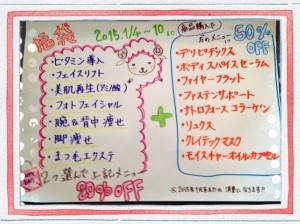 福袋
2015.1/4~10
・ビタミン導入
・フェイスリフト
・美肌再生(アミノ酸)
・フォトフェイシャル
・腕&背中痩せ
・脚痩せ
・まつ毛エクステ
2つ選んで上記メニュー
20%OFF
+
商品購入
方のメニュー
50%OFF
・デリピデックス
・ボディスパイスセーラム
・ファイヤーフラット
・ファステンサポート
・リュクス
・クレイテックマスク
・モイスチャーオイルカプセル